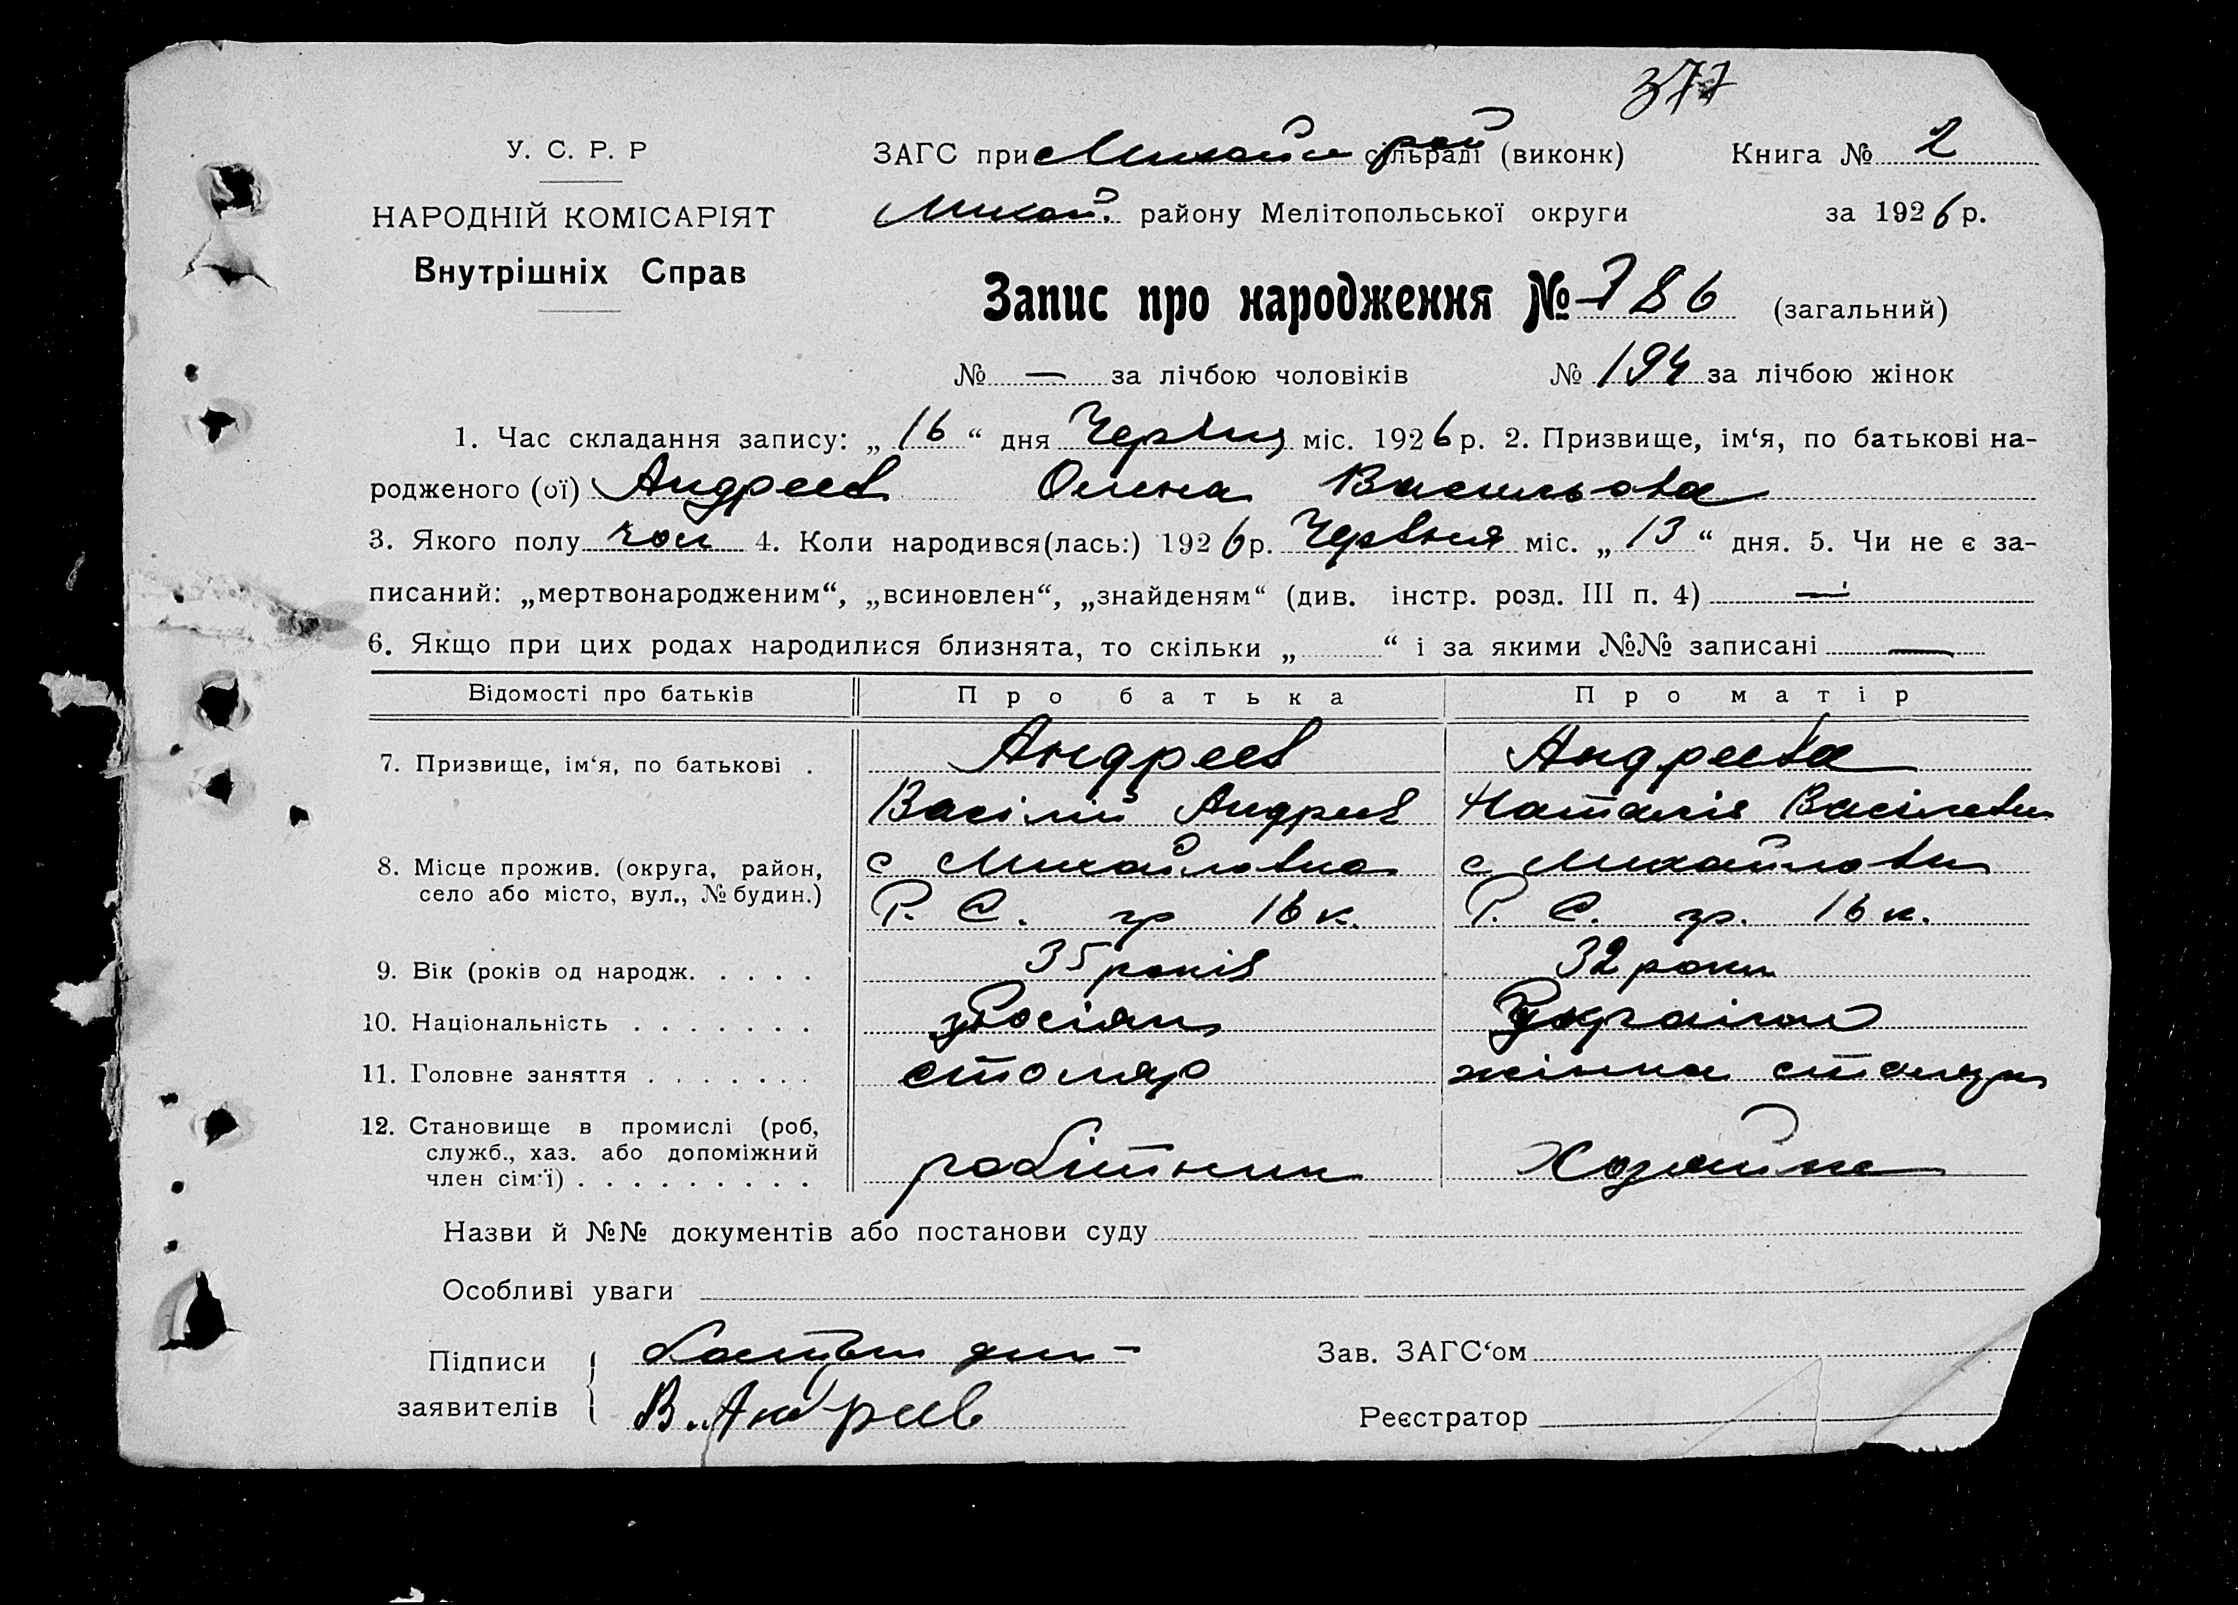 377
У. С. Р. Р
НАРОДНІЙ КОМІСАРІЯТ
Внутрішніх Справ
ЗАГС при Михайл рай сільраді (виконк) Книга № 2
Михай. району Мелітопольської округи за 1926 р.
Запис про народження № 786 (загальний)
№ — за лічбою чоловіків № 194 за лічбою жінок
1. Час складання запису: „ 16 “ дня Червня міс. 1926 р. 2. Призвище, ім‘я, по батькові на-
родженого (ої) Андреев Олена Васильова
3. Якого полу чол 4. Коли народився(лась:) 1926 р. Червня міс. „ 13 “ дня. 5. Чи не є за-
писаний: „мертвонародженим“, „всиновлен“, „знайденям“ (див. інстр. розд. III п. 4) —
6. Якщо при цих родах народилися близнята, то скільки „ “ і за якими №№ записані —
Відомості про батьків Про батька Про матір
7. Призвище, ім‘я, по батькові . Андреев Андреева
Васілій Андреев Наталія Васілевн
8. Місце прожив. (округа, район, село або місто, вул., № будин.) с Михайловка с Михайловк
Р. С. гр 16 к. Р. С. гр. 16 к.
9. Вік (років од народж. . . . . 35 років 32 роки
10. Національність . . . . . . . Росіян Україн
11. Головне заняття . . . . . . . столяр жінка столяра
12. Становище в промислі (роб, служб., хаз. або допоміжний член сім‘ї) . . . . . . . . . робітник Хозяйка
Назви й №№ документів або постанови суду
Особливі уваги
Підписи заявителів
В. Андреев
Зав. ЗАГС‘ом
Реєстратор